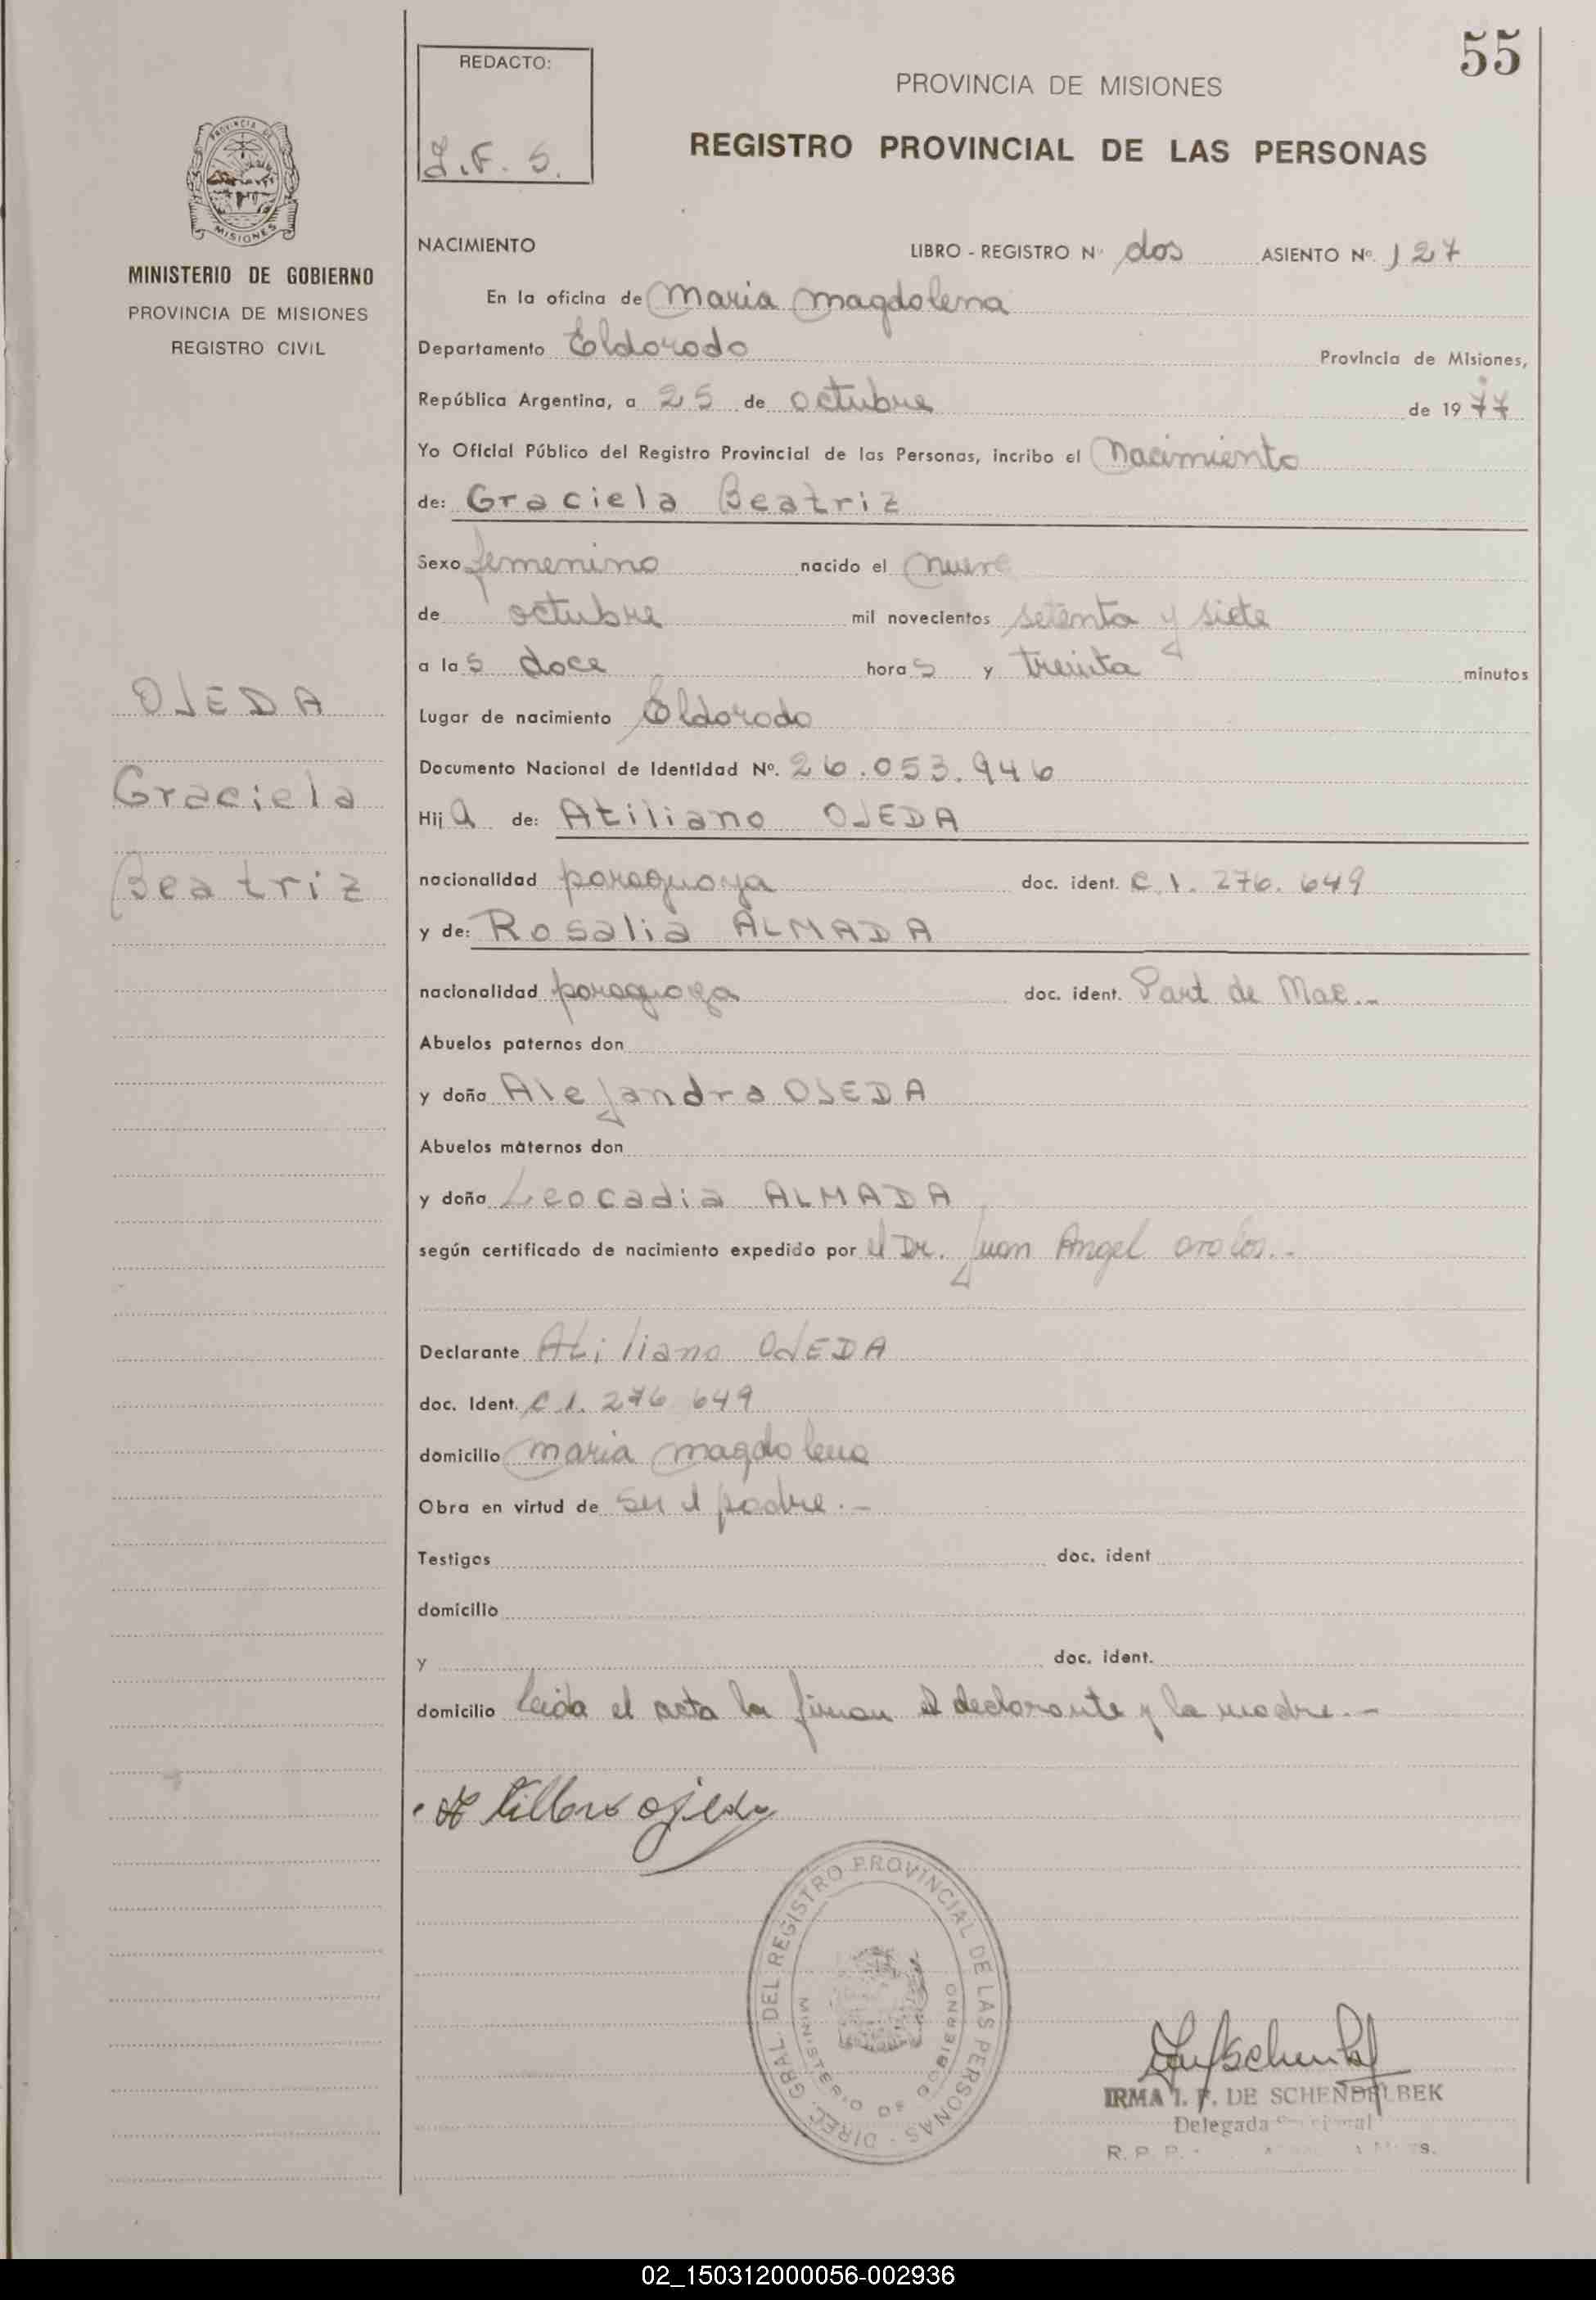 55
REDACTO:
I.F.S.
PROVINCIA DE MISIONES
REGISTRO PROVINCIAL DE LAS PERSONAS
PROVINCIA DE
MISIONES
MINISTERIO DE GOBIERNO
PROVINCIA DE MISIONES
REGISTRO CIVIL
OJEDA
Graciela
Beatriz
NACIMIENTO LIBRO - REGISTRO Nº dos ASIENTO Nº. 127
En la oficina de Maria Magdalena
Departamento Eldorado Provincia de Misiones,
República Argentina, a 25 de octubre de 1977
Yo Oficial Público del Registro Provincial de las Personas, incribo el Nacimiento
de: Graciela Beatriz
Sexo femenino nacido el nueve
de octubre mil novecientos setenta y siete
a las doce horas y treinta minutos
Lugar de nacimiento Eldorado
Documento Nacional de Identidad Nº. 26.053.946
Hija de: Atiliano OJEDA
nacionalidad paraguaya doc. ident. C.I. 276.649
y de: Rosalia ALMADA
nacionalidad paraguaya doc. ident. Part de Mac.-
Abuelos paternos don
y doña Alejandra OJEDA
Abuelos maternos don
y doña Leocadia ALMADA
según certificado de nacimiento expedido por el Dr. Juan Angel
Declarante Atiliano OJEDA
doc. Ident. C.I. 276 649
domicilio Maria Magdalena
Obra en virtud de ser el padre.-
Testigos doc. ident
domicilio
y doc. ident.
domicilio Leida el acta la firman el declarante y la madre.-
ojeda
DIREC. GRAL. DEL REGISTRO PROVINCIAL DE LAS PERSONAS -
MINISTERIO DE GOBIERNO
IRMA I. F. DE SCHENDELBEK
Delegada
R. P. P.
02_150312000056-002936